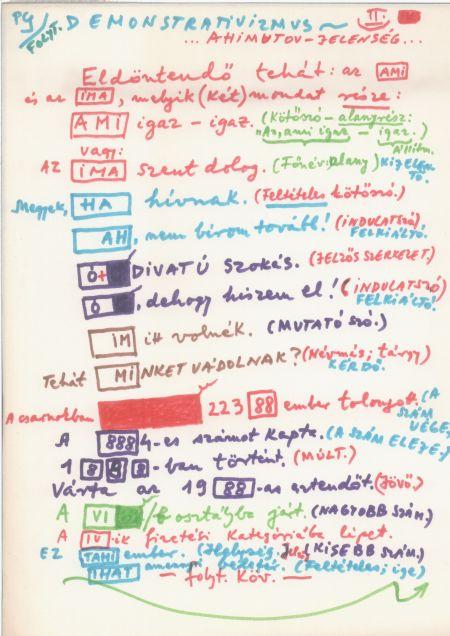 PG DEMONSTRATIVIZMUS ~ II.
FOLYT. ...AHIMUTOV-JELENSÉG...
Eldöntendő tehát: az AMI
és az IMA, melyik (két) mondat része:
AMI igaz - igaz. (Kötőszó - alanyrész:
"Az, ami igaz - igaz.)
vagy: Állítm.
AZ IMA szent dolog. (Főnév: alany) KIJELENTŐ.
Megyek, HA hívnak. (Feltételes kötőszó.)
AH, nem bírom tovább! (INDULATSZÓ, FELKIÁLTÓ.
Ó+ DIVATÚ SZOKÁS. (JELZŐS SZERKEZET.)
Ó, dehogy hiszem el! (INDULATSZÓ) FELKIÁLTÓ.
IM itt volnék. (MUTATÓ SZÓ.)
Tehát MINKET VÁDOLNAK? (Névmás; tárgy) KÉRDŐ.
A csarnokban 223 88 ember tolongott. (A SZÁM VÉGE,
A 888 4-es számot kapta. (A SZÁM ELEJE,)
1 8 8 8-ban történt. (MÚLT.)
Várta az 19 88-as esztendőt. (Jövő.)
A VI /B osztályba járt. (NAGYOBB SZÁM.)
A IV-ik fizetési kategóriába lépet.
EZ TAHI ember. (Helység. KISEBB SZÁM.)
IHAT amennyi belefér. (Feltételes; ige)
— folyt. köv. —